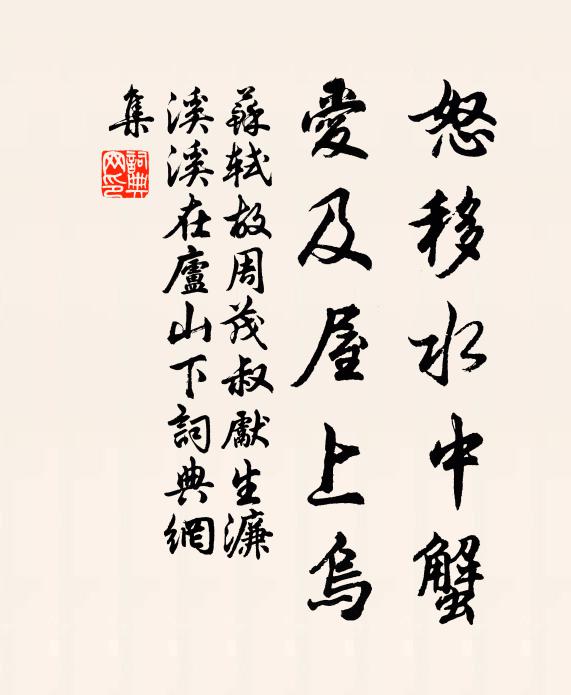 怒移水中蟹
愛及屋上烏
蘇軾故周茂叔獻生濂
溪溪在廬山下詞典網
集
詞典
网印